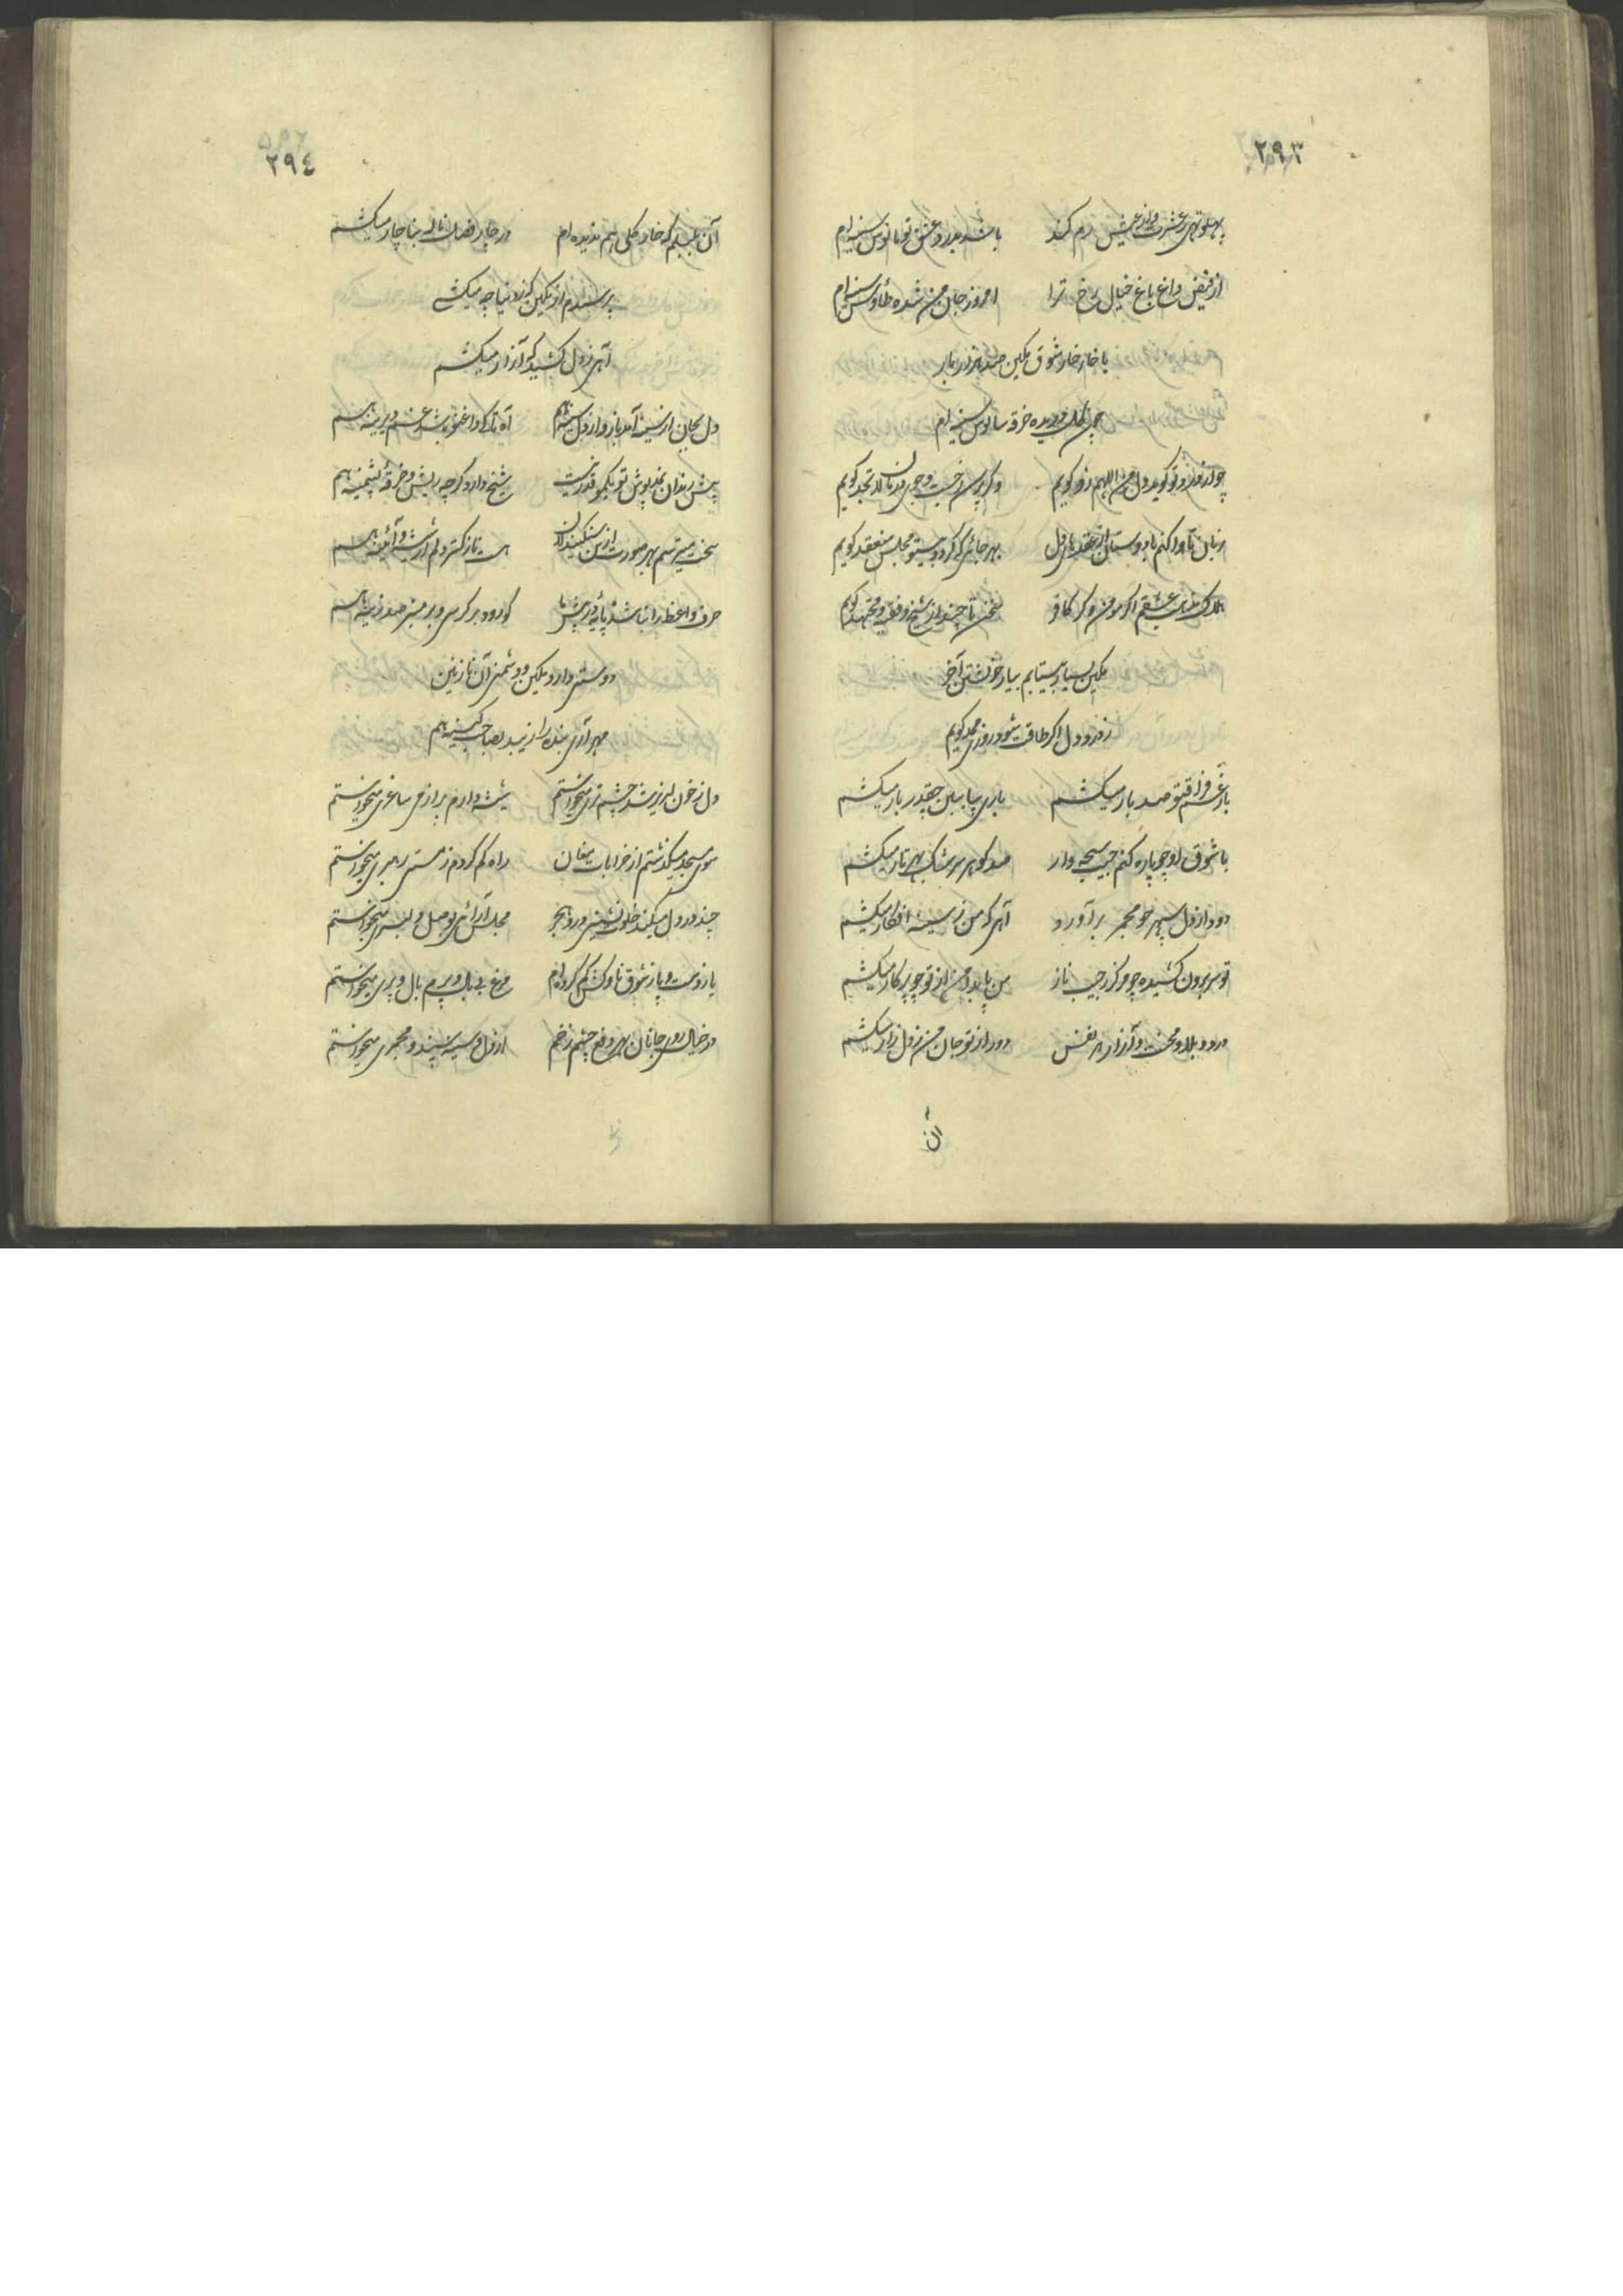 ۲۹۳
پهلو تهی ز عشرت و از عیش رم کند باشد بدرد عشق تو مانوس سینه‌ام
از فیض داغ باغ خیال رخ ترا امروز جان من شده طاوس سینه‌ام
با خار خار شوق مکین صد هزار بار
همچون کل دریده خرقه سالوس سینه‌ام
زبان تا وا کنم با دوستان از عقدهای دل بهر جائی که کردد مجلس منعقد کویم
هلاک مذهب عشقم اگر مومن و کر کافر سخن تا چند از شیخ و فقیه و مجتهد کویم
مکین بسیار بیتابم بیار خویشتن آخر
ز درد دل اگر طاقت شود روزی مدد کویم
بار غم فراق تو صد بار میکشم باری بیا ببین چقدر بار میکشم
با شوق او چو پاره کنم جیب سبحه وار صد کوهر سرشک بهر تار میکشم
دود از دل سپهر چو مجمر برآورد آهی که من ز سینه افکار میکشم
تو سر برون کشیده چو مرکز ز جیب ناز من پا بدامن از تو چو پرکار میکشم
درد و بلا و محنت و آزار هر نفس دور از تو جان من ز دل زار میکشم
آن
۲۹٤
آن بلبلم که خار کلی هم ندیده‌ام در خار قفس ناله بناچار میکشم
پرسیدم از مکین که ز دنیا چه میکشی
آهی ز دل کشید که آزار میکشم
دل بجان از سینه آمد باز و از دل سینه هم آه تا کی داغ نو باشد غم دیرینه هم
پیش رندان نمد پوش تو یکمو قدر نیست شیخ دارد کرچه ریش و خرقه پشمینه هم
سخت میترسم بهر صورت ازین سنکین دلان هست نازکتر دلم از شیشه و آئینه هم
حرف واعظ را نباشد پایه در پیش ما کو رود بر کرسی و بر منبر صد زینه هم
دوستی دارد مکین و دشمنی آن نازنین
مهر آری بنده را زیبد بصاحب کینه هم
دل ز خون لبریز شد چشم تری میخواستم شیشه دارم پر از می ساغری میخواستم
سوی مسجد میکذشتم از خرابات مغان راه کم کردم ز مستی رهبری میخواستم
چند در دل میکند خلوت نشینی درد هجر مجلس آرائی بوصل دلبری میخواستم
پا ز دست و پا ز شوق ناوکش کم کرده‌ام مرغ بی بال و پرم بال و پری میخواستم
در خیال روی جانان بهر دفع چشم زخم از دل و سینه سپند و مجمری میخواستم